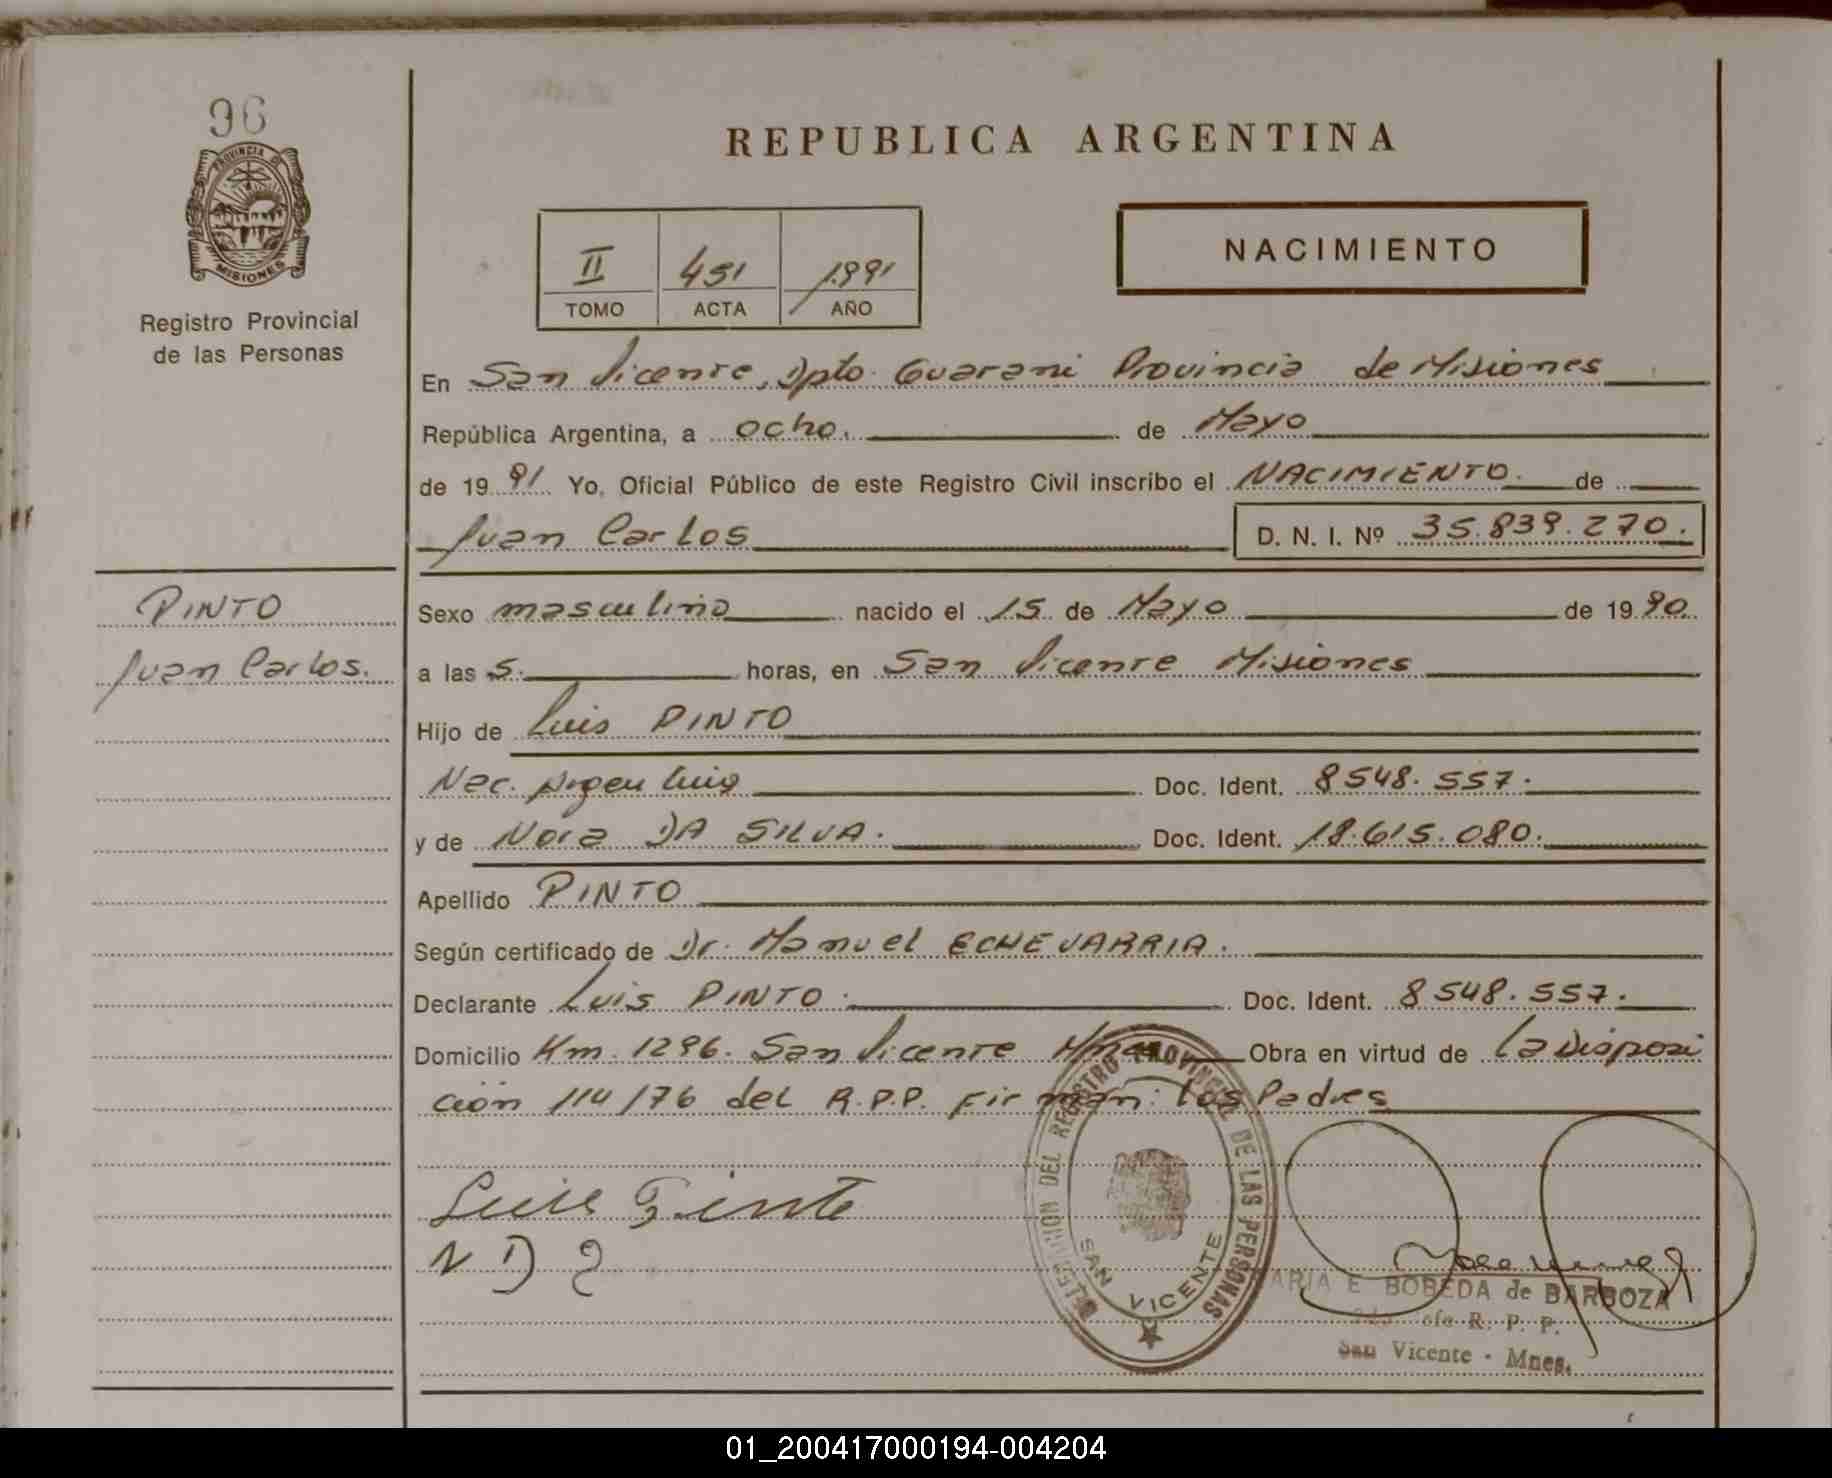 96
PROVINCIA DE
MISIONES
Registro Provincial
de las Personas
REPUBLICA ARGENTINA
NACIMIENTO
II 451 1991
TOMO ACTA AÑO
En San Vicente, Dpto. Guarani Provincia de Misiones
República Argentina, a ocho. de Mayo
de 1991 Yo, Oficial Público de este Registro Civil inscribo el NACIMIENTO. de
Juan Carlos D. N. I. Nº 35.839.270.
PINTO
Juan Carlos.
Sexo masculino nacido el 15 de Mayo de 1990.
a las 5. horas, en San Vicente Misiones
Hijo de Luis PINTO
Nac. Argentina Doc. Ident. 8548.557.
y de Nora DA SILVA. Doc. Ident. 18.615.080.
Apellido PINTO
Según certificado de Dr. Manuel ECHEVARRIA.
Declarante Luis PINTO. Doc. Ident. 8548.557.
Domicilio Km. 1296. San Vicente Mnes Obra en virtud de la Disposi
ción 114/76 del R.P.P. firman: los Padres
Luis Pinto
N D
DELEGACION DEL REGISTRO PROVINCIAL DE LAS PERSONAS
SAN VICENTE
MARIA E BOBEDA de BARBOZA
R. P. P.
San Vicente - Mnes.
01_200417000194-004204